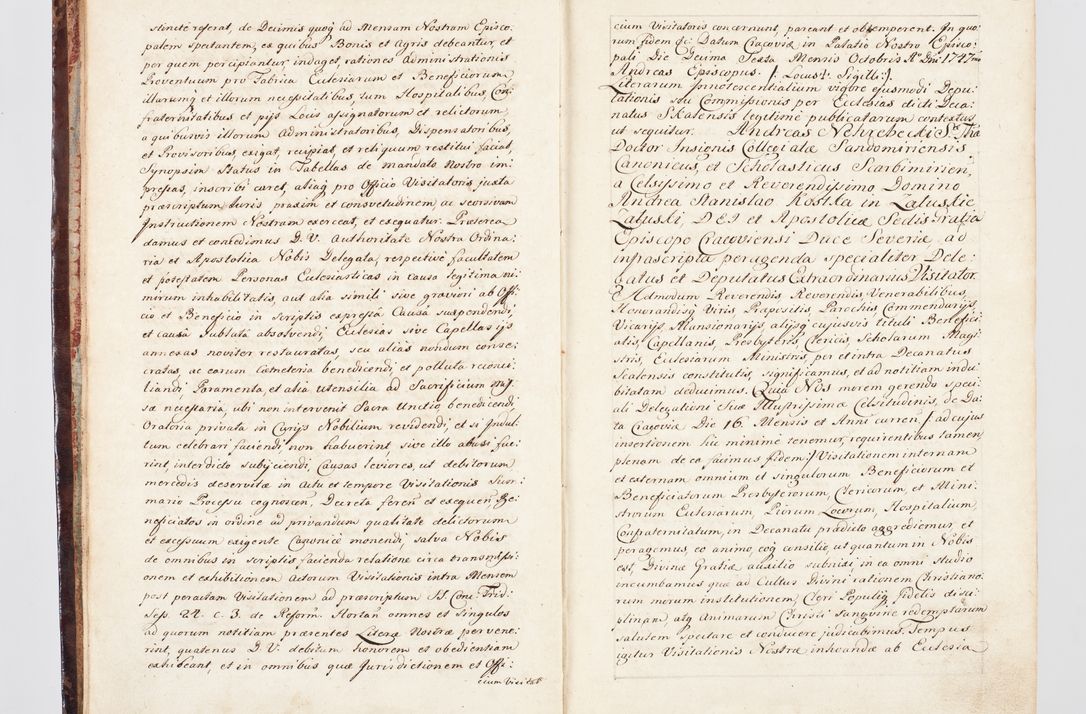 stincte referat, de Decimis quoq ad Mensam Nostram Episco:
palem spectantem, ex quibus Bonis et Agris debeantur, et
per quem percipiantur indaget, rationes Administrationis
Proventuum pro Fabrica Ecclesiarum et Beneficiorum,
illarumq et illorum necessitatibus, tum Hospitalibus, Con:
fraternitatibus et pijs Locis assignatorum et relictorum
a quibusvis illorum Administratoribus, Dispensatoribus,
et Provisoribus, exigat, recipiat, et reliquum restitui faciat,
Synopsim Status in Tabellas de mandato Nostro im:
pressas, inscribi curet, aliaq pro Officio Visitatoris juxta
præscriptum juris praxim et consvetudinem ac seorsivam
Instructionem Nostram exerceat, et exequatur. Præterea
damus et concedimus D. V. Authoritate Nostra Ordina:
ria et Apostolica Nobis Delegata, respective facultatem
et potestatem Personas Ecclesiasticas in causa legitima ni:
mirum inhabilitatis, aut alia simili sive graviori ab Offi:
cio et Beneficio in scriptis expressa Causa suspendendi,
et causa sublata absolvendi, Ecclesias sive Capellas ijs
annexas noviter restauratas, seu alias nondum conse:
cratas, ac earum Cæmeteria benedicendi, et polluta reconci:
liandi, Paramenta, et alia utensilia ad Sacrificium Mis:
sæ necessaria, ubi non intervenit Sacra Unctio, benedicendi,
Oratoria privata in Curijs Nobilium revidendi, et si Indul:
tum celebrari faciendi non habuerint, sive illo abusi fue:
rint, interdicto subijciendi, Causas leviores, ut debitorum
mercedis deservitæ in actu et tempore Visitationis Sum:
mario Processu cognoscen, Decreta feren et exequen, Be:
neficiatos in ordine ad privandum qualitate delictorum
et excessuum exigente Canonice monendi, salva Nobis
de omnibus in scriptis facienda relatione circa transmissi:
onem et exhibitionem Actorum Visitationis intra Mensem
post peractam Visitationem ad præscriptum SS. Conc: Trid:
Sess 24. c. 3. de Reform. Hortan omnes et singulos
ad quorum notitiam præsentes Literæ Nostræ pervene:
rint, quatenus D. V. debitum honorem et obedientiam
exhibeant, et in omnibus quæ Jurisdictionem et Offi:
cium Visitat
cium Visitatoris concernunt, pareant et obtemperent. In quo:
rum fidem &c: Datum Cracoviæ in Palatio Nostro Episco:
pali Die Decima Sexta Mensis Octobris Ao Dni 1747mo
Andreas Episcopus. /: Locus L. Sigilli:/.
Literarum Innotescentialium vigore ejusmodi Depu:
tationis seu Commissionis per Ecclesias dicti Deca:
natus Skalensis legitime publicatarum contextus
ut sequitur. Andreas Nehrebecki S. Thæ
Doctor Insignis Collegiatæ Sandomiriensis
Canonicus, et Scholasticus Scarbimirien,
a Celsissimo et Reverendissimo Domino
Andrea Stanislao Kostka in Załuskie
Załuski, DEI et Apostolicæ Sedis Gratia
Episcopo Cracoviensi Duce Severiæ, ad
infrascripta peragenda specialiter Dele:
gatus et Deputatus Extraordinarius Visitator.
Admodum Reverendis, Reverendis, Venerabilibus,
Honorandisq Viris, Præpositis, Parochis, Commendarijs,
Vicarijs, Mansionarijs, alijsq cujusvis tituli Benefici:
atis, Capellanis, Presbyteris, Clericis, Scholarum Magi:
stris, Ecclesiarum Ministris, per et intra Decanatus
Scalensis constitutis, significamus, et ad notitiam indu:
bitatam deducimus. Quia Nos morem gerendo speci:
ali Delegationi Suæ Illustrissimæ Celsitudinis, de Da:
ta Cracoviæ Die 16. Mensis et Anni curen /: ad cujus
insertionem hic minime tenemur, requirentibus tamen
plenam de ea facimus fidem:/ Visitationem internam
et externam omnium et singulorum Beneficiorum et
Beneficiatorum Presbyterorum, Clericorum, et Mini:
strorum Ecclesiarum, Piorum Locorum, Hospitalium,
Confraternitatum, in Decanatu prædicto aggrediemur, et
peragemus, eo animo, eoq consilio, ut quantum in Nobis
est, Divinæ Gratiæ auxilio subnixi, in ea omni studio
incumbamus quæ ad Cultus Divini rationem Christiano:
rum morum institutionem, Cleri Populiq fidelis disci:
plinam, atq Animarum Christi Sanguine redemptarum
salutem spectare et conducere judicabimus. Tempus
igitur Visitationis Nostræ inchoandæ ab Ecclesia